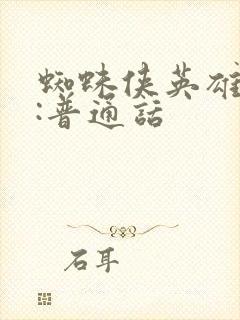 蜘蛛侠英雄
:普通話
石耳